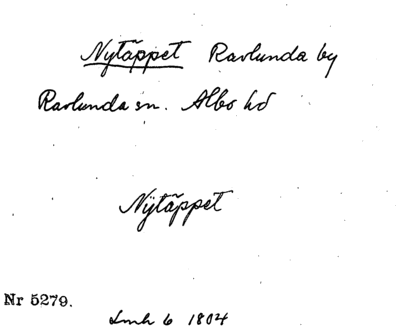 Nytäppet Ravlunda by
Ravlunda sn. Albo hd
Nÿtäppet
Nr 5279.
Lmh 6 1804